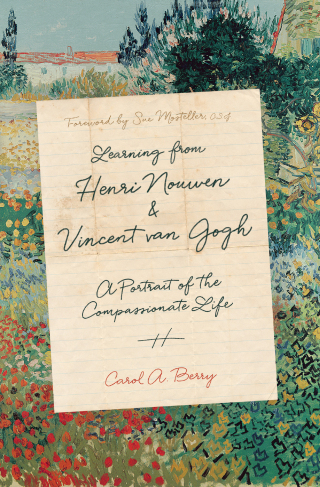 Foreword by Sue Mosteller, CSJ
Learning from
Henri Nouwen
&
Vincent van Gogh
A Portrait of the
Compassionate Life
Carol A. Berry